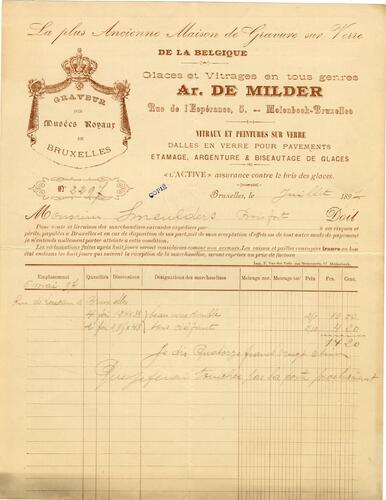 La plus Ancienne Maison de Gravure sur Verre
DE LA BELGIQUE
Glaces et Vitrages en tous genres
Ar. DE MILDER
Rue de l'Espérance, 5. — Molenbeek-Bruxelles
VITRAUX ET PEINTURES SUR VERRE
DALLES EN VERRE POUR PAVEMENTS
ETAMAGE, ARGENTURE & BISEAUTAGE DE GLACES
«L'ACTIVE» assurance contre le bris des glaces.
GRAVEUR
DES
Musées Royaux
DE
BRUXELLES
N° 2297
COPIE
Bruxelles, le Juillet 189
Monsieur Smeulders Doit
Pour vente et livraison des marchandises suivantes expédiées par à ses risques et
périls, payables à Bruxelles et en cas de disposition de ma part, soit de mon acceptation d'effets ou de tout autre mode de payement
je n'entends nullement porter atteinte à cette condition.
Les réclamations faites après huit jours seront considérées comme non avenues. Les caisses et pailles renvoyées franco en bon
état endéans les huit jours qui suivent la réception de la marchandise, seront reprises au prix de facture
Emplacement Quantités Dimensions Désignations des marchandises Métrage cour. Métrage car. Prix Frcs. Cs
6 mai 97
Rue de à Bruxelles
4 double 10.00
2 2/10 4 20
14 20
Je dis Quatorze francs vingt
Que je ferai toucher par la poste prochainement